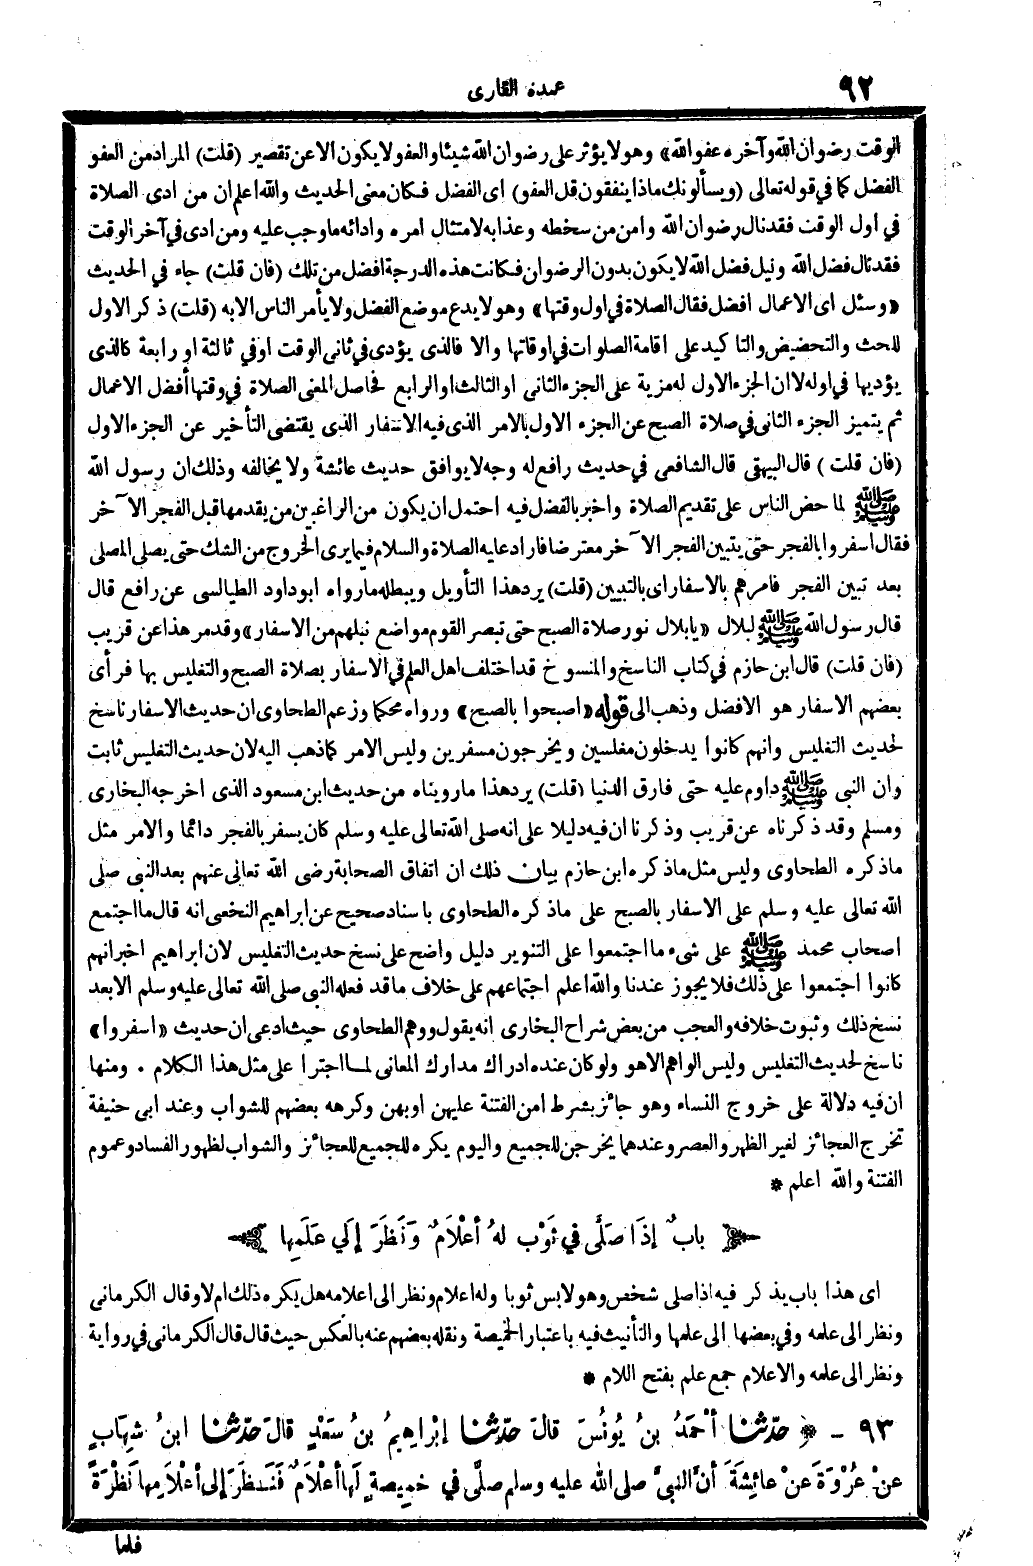 ٩٢
عمدة القارى
الوقت رضوان الله وآخره عفو الله» وهو لا يؤثر على رضوان الله شيئا والعفو لا يكون الا عن تقصير (قلت) المراد من العفو
الفضل كما في قوله تعالى (ويسألونك ماذا ينفقون قل العفو) اى الفضل فكان معنى الحديث والله اعلم ان من ادى الصلاة
في اول الوقت فقد نال رضوان الله وامن من سخطه وعذابه لامتثال امره وادائه ما وجب عليه ومن ادى في آخر الوقت
فقد نال فضل الله ونيل فضل الله لا يكون بدون الرضوان فكانت هذه الدرجة افضل من تلك (فان قلت) جاء في الحديث
«وسئل اى الاعمال افضل فقال الصلاة في اول وقتها» وهو لا يدع موضع الفضل ولا يأمر الناس الا به (قلت) ذكر الاول
للحث والتحضيض والتاكيد على اقامة الصلوات في اوقاتها والا فالذى يؤدى في ثانى الوقت او في ثالثة او رابعة كالذى
يؤديها في اوله لا ان الجزء الاول له مزية على الجزء الثانى او الثالث او الرابع فحاصل المعنى الصلاة في وقتها أفضل الاعمال
ثم يتميز الجزء الثانى في صلاة الصبح عن الجزء الاول بالامر الذى فيه الاسفار الذى يقتضى التأخير عن الجزء الاول
(فان قلت) قال البيهقى قال الشافعى في حديث رافع له وجه لا يوافق حديث عائشة ولا يخالفه وذلك ان رسول الله
ﷺ لما حض الناس على تقديم الصلاة واخبر بالفضل فيه احتمل ان يكون من الراغبين من يقدمها قبل الفجر الآخر
فقال اسفروا بالفجر حتى يتبين الفجر الآخر معترضا فاراد عليه الصلاة والسلام فيما يرى الخروج من الشك حتى يصلى المصلى
بعد تبين الفجر فامرهم بالاسفار اى بالتبيين (قلت) يرد هذا التأويل ويبطله ما رواه ابو داود الطيالسى عن رافع قال
قال رسول الله ﷺ لبلال «يا بلال نور صلاة الصبح حتى تبصر القوم مواضع نبلهم من الاسفار» وقد مر هذا عن قريب
(فان قلت) قال ابن حازم في كتاب الناسخ والمنسوخ قد اختلف اهل العلم في الاسفار بصلاة الصبح والتغليس بها فرأى
بعضهم الاسفار هو الافضل وذهب الى قوله «اصبحوا بالصبح» ورواه محكما وزعم الطحاوى ان حديث الاسفار ناسخ
لحديث التغليس وانهم كانوا يدخلون مغلسين ويخرجون مسفرين وليس الامر كما ذهب اليه لان حديث التغليس ثابت
وان النبى ﷺ داوم عليه حتى فارق الدنيا (قلت) يرد هذا ما رويناه من حديث ابن مسعود الذى اخرجه البخارى
ومسلم وقد ذكرناه عن قريب وذكرنا ان فيه دليلا على انه صلى الله تعالى عليه وسلم كان يسفر بالفجر دائما والامر مثل
ما ذكره الطحاوى وليس مثل ما ذكره ابن حازم بيان ذلك ان اتفاق الصحابة رضى الله تعالى عنهم بعد النبى صلى
الله تعالى عليه وسلم على الاسفار بالصبح على ما ذكره الطحاوى باسناد صحيح عن ابراهيم النخعى انه قال ما اجتمع
اصحاب محمد ﷺ على شىء ما اجتمعوا على التنوير دليل واضح على نسخ حديث التغليس لان ابراهيم اخبر انهم
كانوا اجتمعوا على ذلك فلا يجوز عندنا والله اعلم اجتماعهم على خلاف ما قد فعله النبى صلى الله تعالى عليه وسلم الا بعد
نسخ ذلك وثبوت خلافه والعجب من بعض شراح البخارى انه يقول ووهم الطحاوى حيث ادعى ان حديث «اسفروا»
ناسخ لحديث التغليس وليس الواهم الا هو ولو كان عنده ادراك مدارك المعانى لما اجترا على مثل هذا الكلام . ومنها
ان فيه دلالة على خروج النساء وهو جائز بشرط امن الفتنة عليهن او بهن وكرهه بعضهم للشواب وعند ابى حنيفة
تخرج العجائز لغير الظهر والعصر وعندهما يخرجن للجميع واليوم يكره للجميع للعجائز والشواب لظهور الفساد وعموم
الفتنة والله اعلم *
بابٌ إذَا صَلَّى في ثَوْبٍ لهُ أعْلَامٌ وَنَظَرَ إلَي عَلَمِها
اى هذا باب يذكر فيه اذا صلى شخص وهو لابس ثوبا وله اعلام ونظر الى اعلامه هل يكره ذلك ام لا وقال الكرمانى
ونظر الى علمه وفي بعضها الى علمها والتأنيث فيه باعتبار الخميصة ونقله بعضهم عنه بالعكس حيث قال قال الكرمانى في رواية
ونظر الى علمه والاعلام جمع علم بفتح اللام *
٩٣ - * حدّثنا أحْمَدُ بنُ يُونُسَ قالَ حدّثنا إبْراهِيمُ بنُ سَعْدٍ قالَ حدّثنا ابنُ شِهَابٍ
عنْ عُرْوَةَ عَنْ عائِشَةَ أنَّ النبيَّ صلى الله عليه وسلم صلَّى في خَمِيصةٍ لَها أعْلَامٌ فَنَظَرَ إلى أعْلَامِها نَظْرَةً
فلما